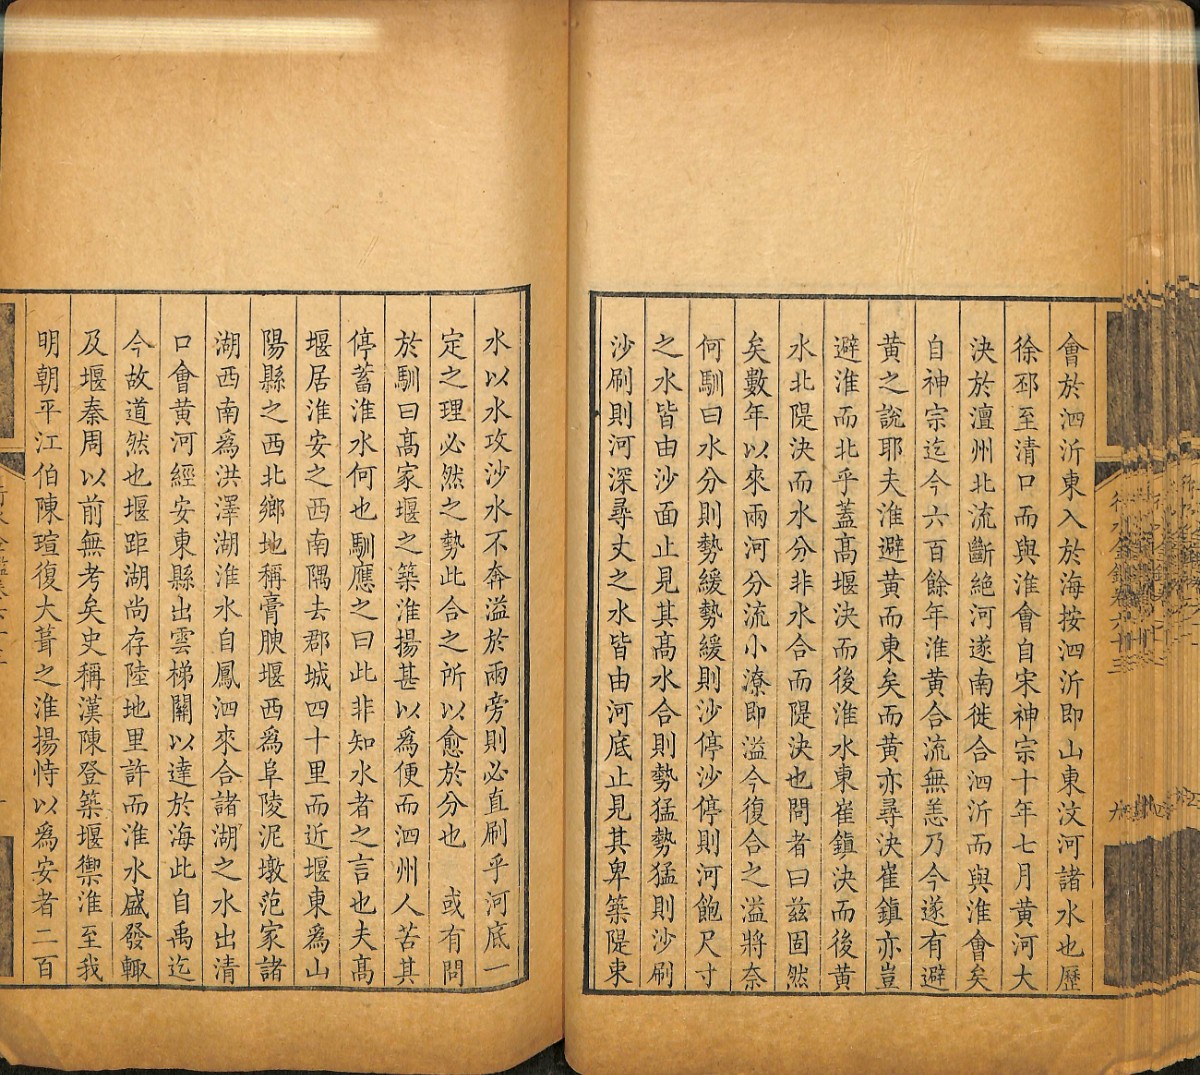 會於泗沂東入於海按泗沂即山東汶河諸水也歷
徐邳至清口而與淮會自宋神宗十年七月黄河大
決於澶州北流斷絕河遂南徙合泗沂而與淮會矣
自神宗迄今六百餘年淮黄合流無恙乃今遂有避
黄之說耶夫淮避黄而東矣而黄亦尋決崔鎮亦豈
避淮而北乎蓋高堰決而後淮水東崔鎮決而後黄
水北隄決而水分非水合而隄決也問者曰茲固然
矣數年以來兩河分流小潦即溢今復合之溢將奈
何馴曰水分則勢緩勢緩則沙停沙停則河飽尺寸
之水皆由沙面止見其高水合則勢猛勢猛則沙刷
沙刷則河深尋丈之水皆由河底止見其卑築隄束
水以水攻沙水不奔溢於兩旁則必直刷乎河底一
定之理必然之勢此合之所以愈於分也　或有問
於馴曰高家堰之築淮揚甚以為便而泗州人苦其
停蓄淮水何也馴應之曰此非知水者之言也夫高
堰居淮安之西南隅去郡城四十里而近堰東為山
陽縣之西北鄉地稱膏腴堰西為阜陵泥墩范家諸
湖西南為洪澤湖淮水自鳳泗來合諸湖之水出清
口會黄河經安東縣出雲梯關以達於海此自禹迄
今故道然也堰距湖尚存陸地里許而淮水盛發輒
及堰秦周以前無考矣史稱漢陳登築堰禦淮至我
明朝平江伯陳瑄復大葺之淮揚恃以為安者二百
行水金鑑卷六十三
九